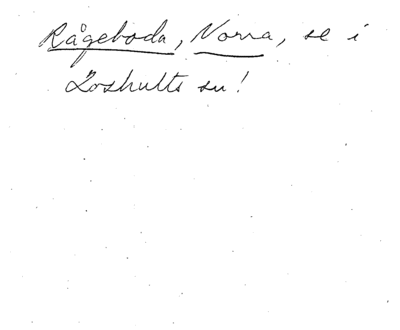 Rågeboda, Norra, se i
Loshults sn!